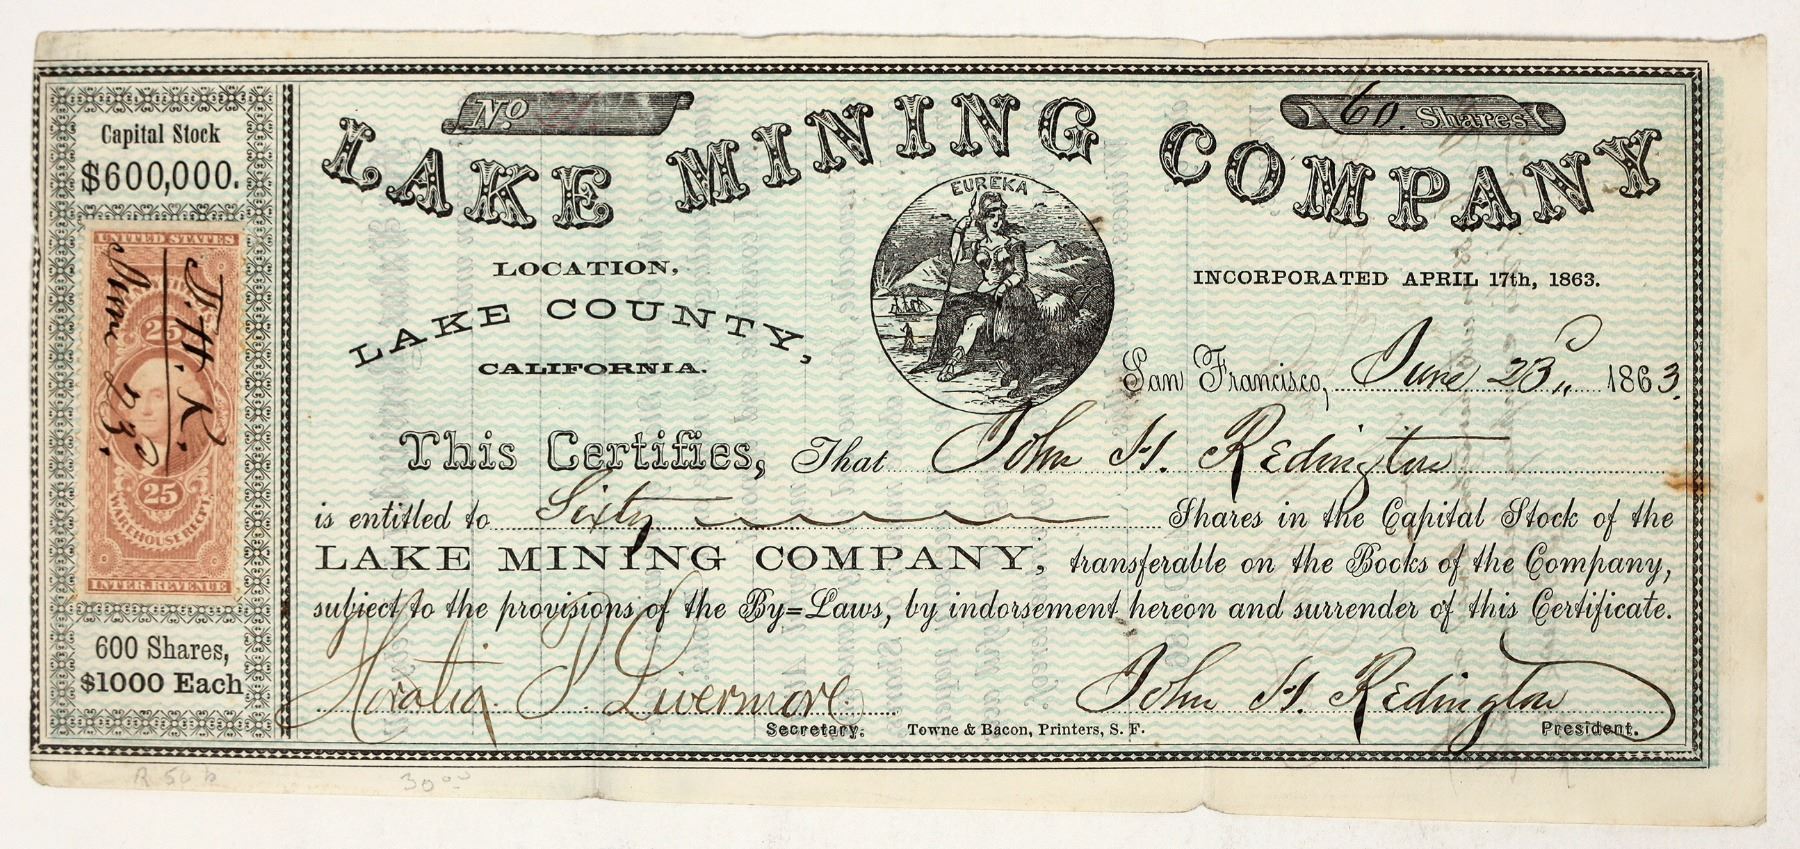 No.
60. Shares
LAKE MINING COMPANY
Capital Stock
$600,000.
UNITED STATES
25
25
WAREHOUSE RECPT.
INTER. REVENUE
J. H. R.
June 23.
600 Shares,
$1000 Each
EUREKA
LOCATION,
LAKE COUNTY,
CALIFORNIA.
INCORPORATED APRIL 17th, 1863.
San Francisco, June 23d, 1863.
This Certifies, That John H. Redington
is entitled to Sixty Shares in the Capital Stock of the
LAKE MINING COMPANY, transferable on the Books of the Company,
subject to the provisions of the By=Laws, by indorsement hereon and surrender of this Certificate.
Horatio P. Livermore John H. Redington
Secretary. Towne & Bacon, Printers, S. F. President.
R 50 b 30 00